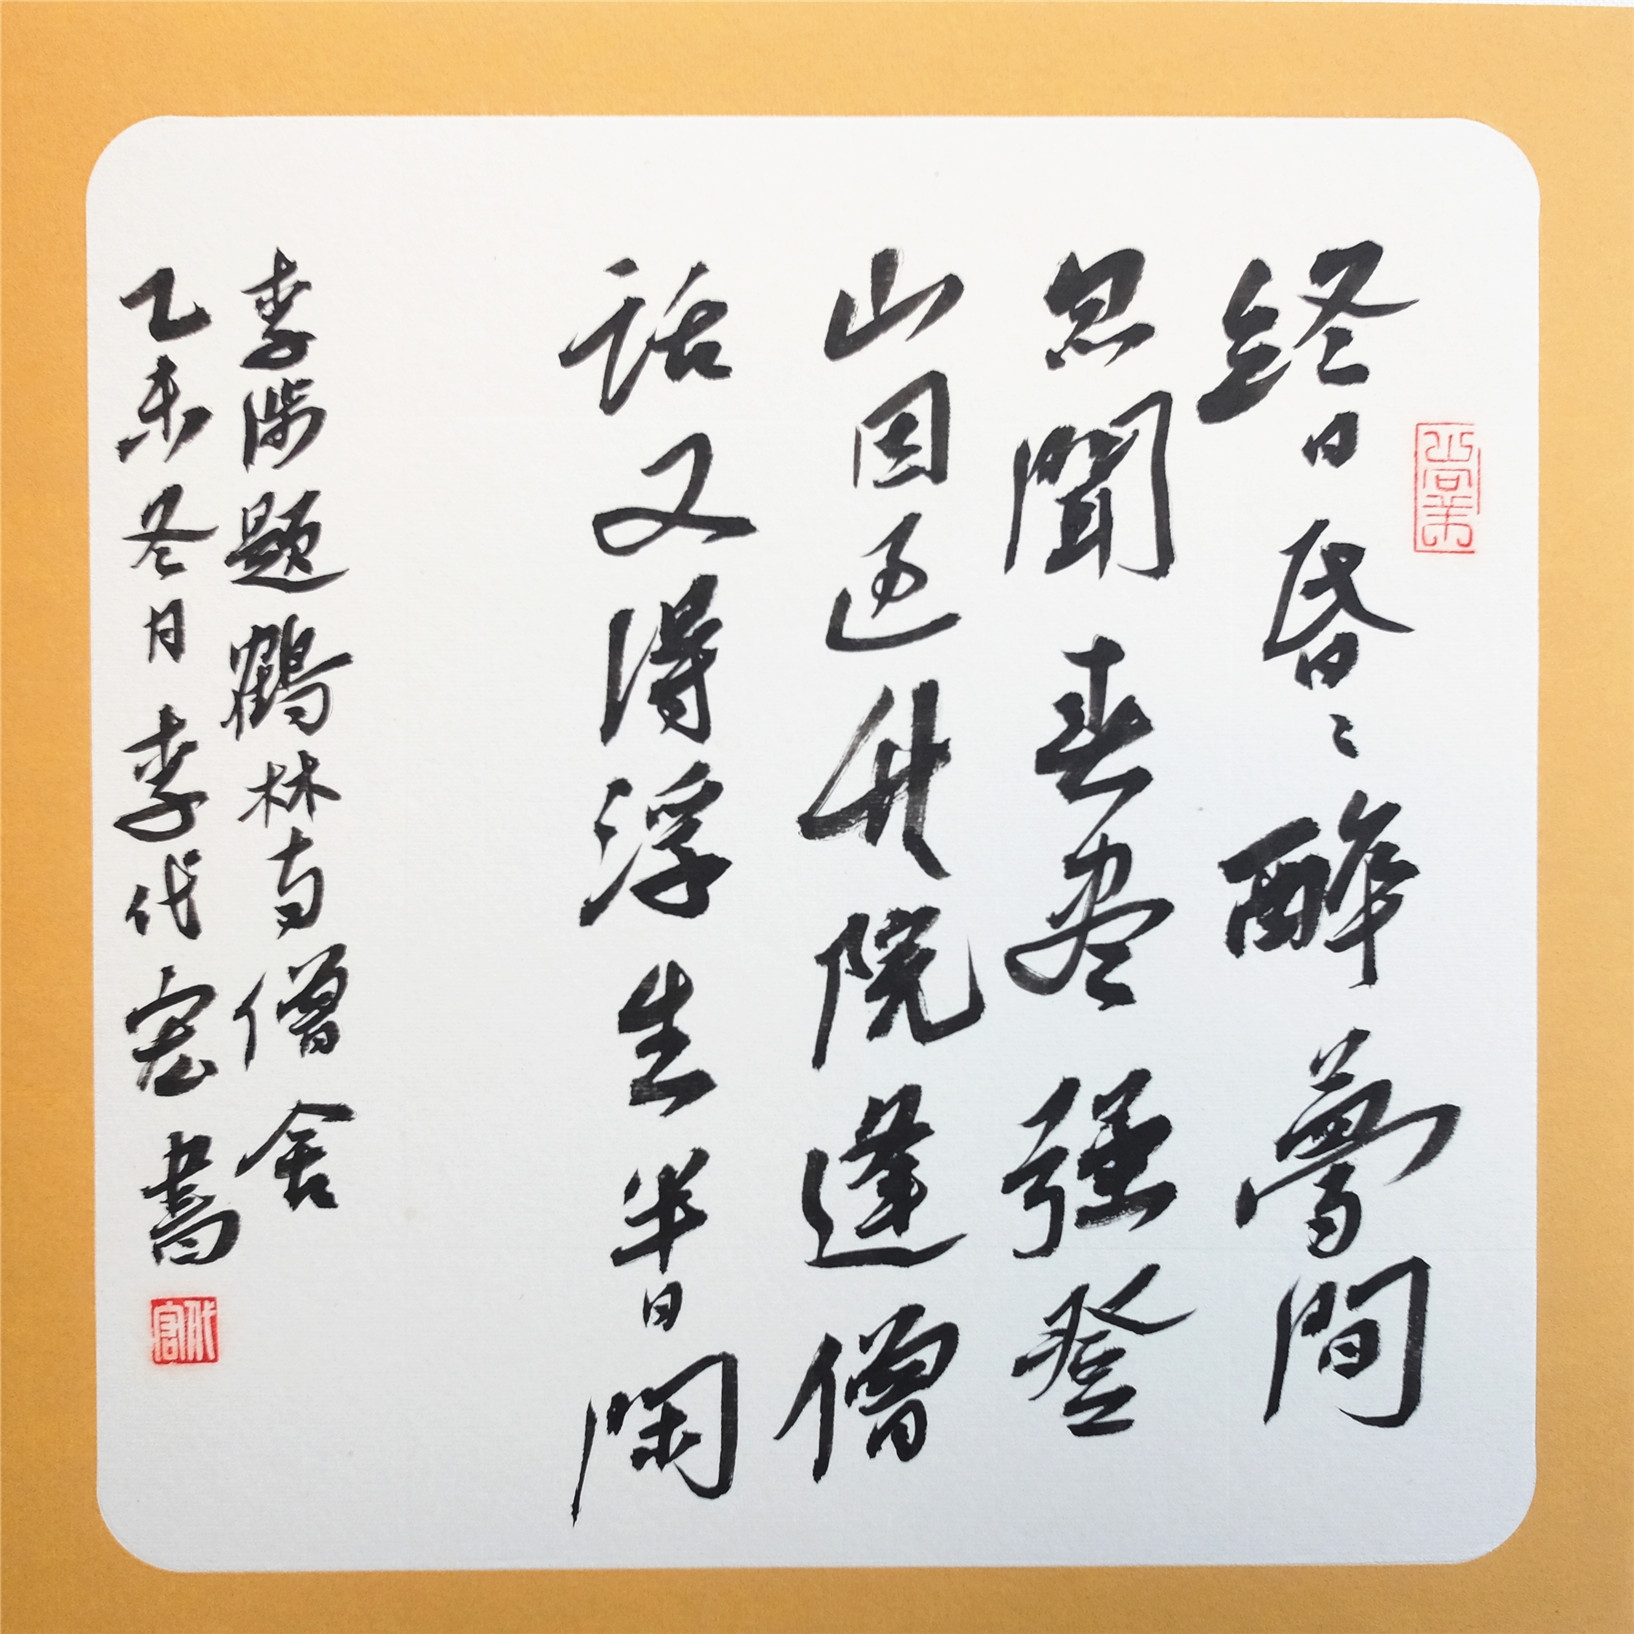 終日昏〻醉夢間
忽聞春尽強登
山因過竹院逢僧
話又得浮生半日閑
李涉題鶴林寺僧舍
乙未冬月李代宏書